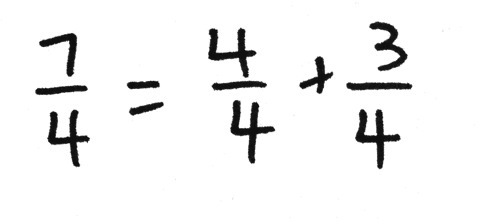 7/4 = 4/4 + 3/4